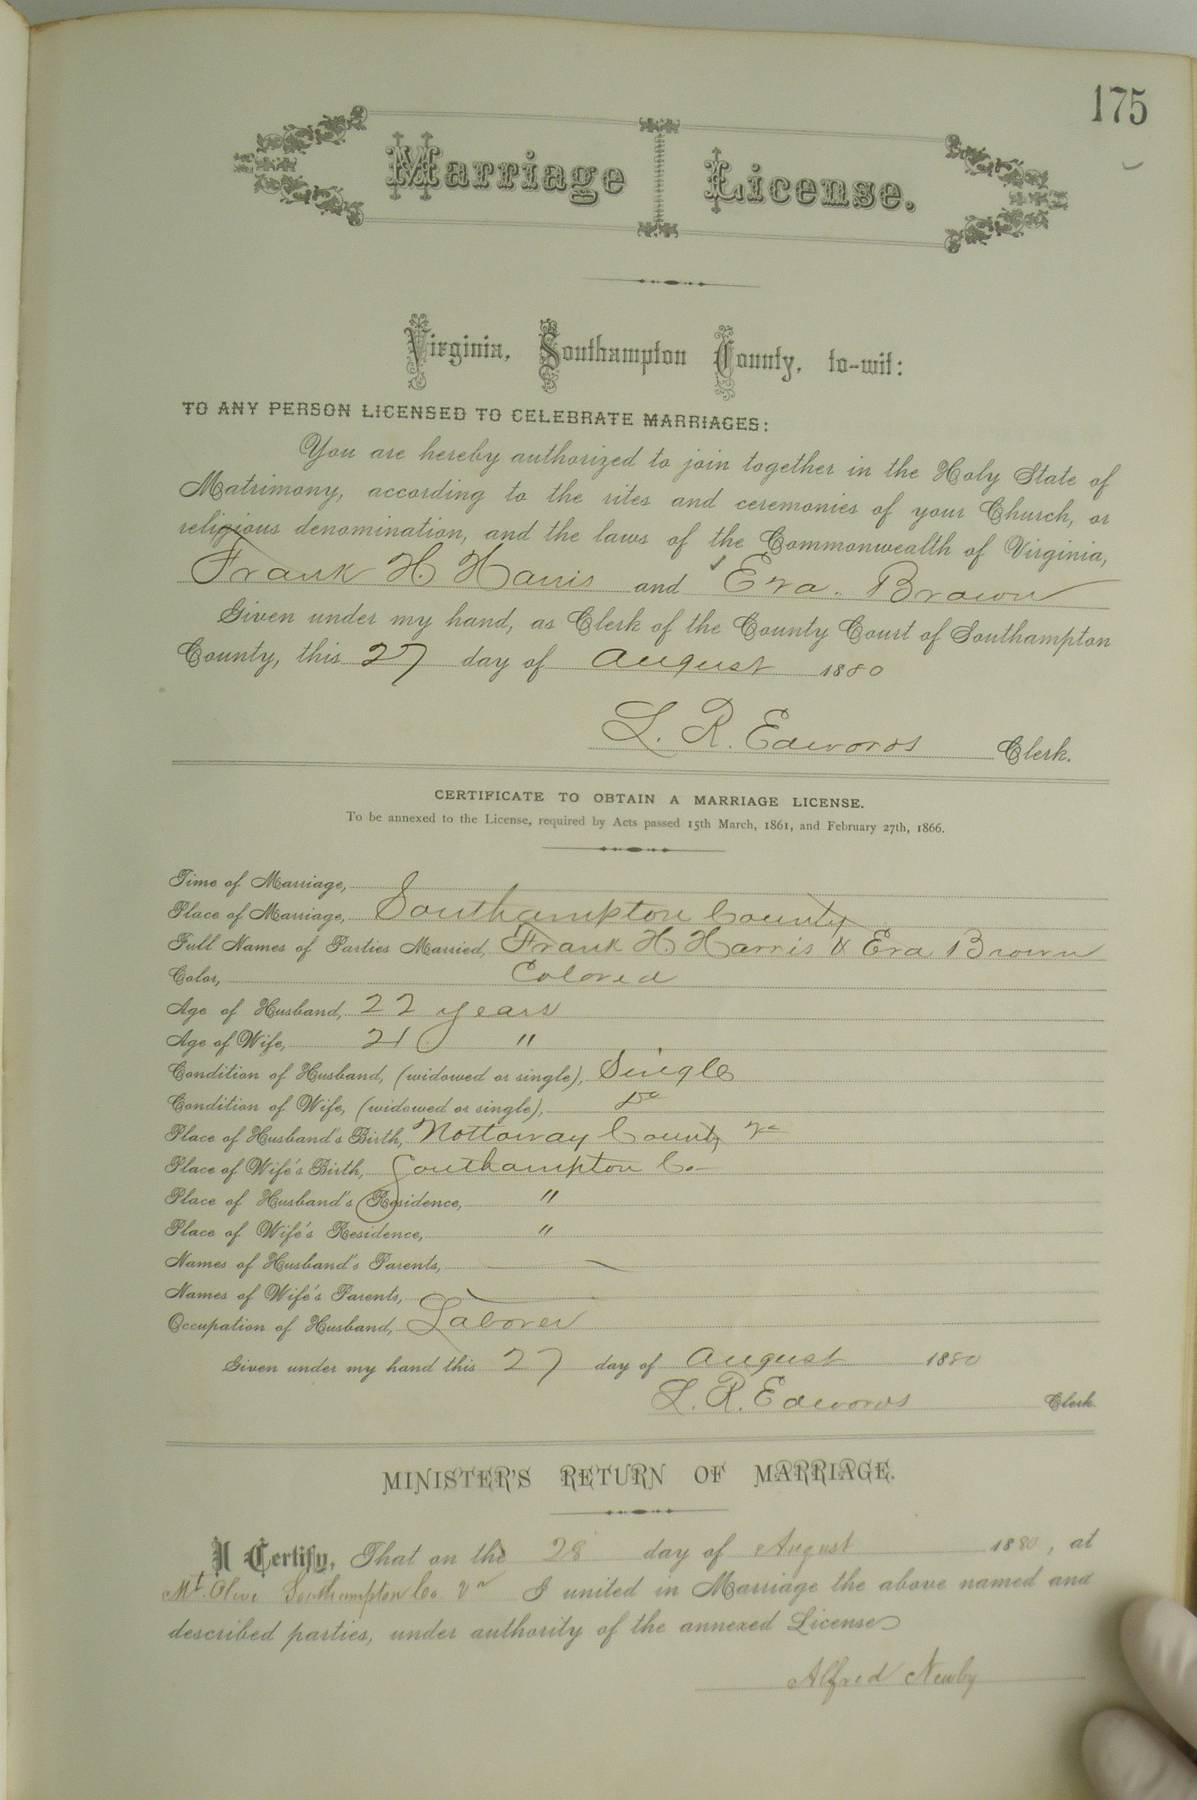 175
Marriage License.
Virginia, Southampton County, to-wit:
TO ANY PERSON LICENSED TO CELEBRATE MARRIAGES:
You are hereby authorized to join together in the Holy State of
Matrimony, according to the rites and ceremonies of your Church, or
religious denomination, and the laws of the Commonwealth of Virginia,
Frank H. Harris and Eva. Brown
Given under my hand, as Clerk of the County Court of Southampton
County, this 27 day of August 1880
L. R. Edwards Clerk.
CERTIFICATE TO OBTAIN A MARRIAGE LICENSE.
To be annexed to the License, required by Acts passed 15th March, 1861, and February 27th, 1866.
Time of Marriage,
Place of Marriage, Southampton County
Full Names of Parties Married, Frank H Harris & Eva Brown
Color, Colored
Age of Husband, 22 years
Age of Wife, 21 "
Condition of Husband, (widowed or single), Single
Condition of Wife, (widowed or single), Do
Place of Husband's Birth, Nottoway County Va
Place of Wife's Birth, Southampton Co.
Place of Husband's Residence, "
Place of Wife's Residence, "
Names of Husband's Parents,
Names of Wife's Parents,
Occupation of Husband, Laborer
Given under my hand this 27 day of August 1880
L. R. Edwards Clerk
MINISTER'S RETURN OF MARRIAGE.
I Certify, That on the 28 day of August 1880, at
Mt. Olive Southampton Co Va I united in Marriage the above named and
described parties, under authority of the annexed License
Alfred Newby